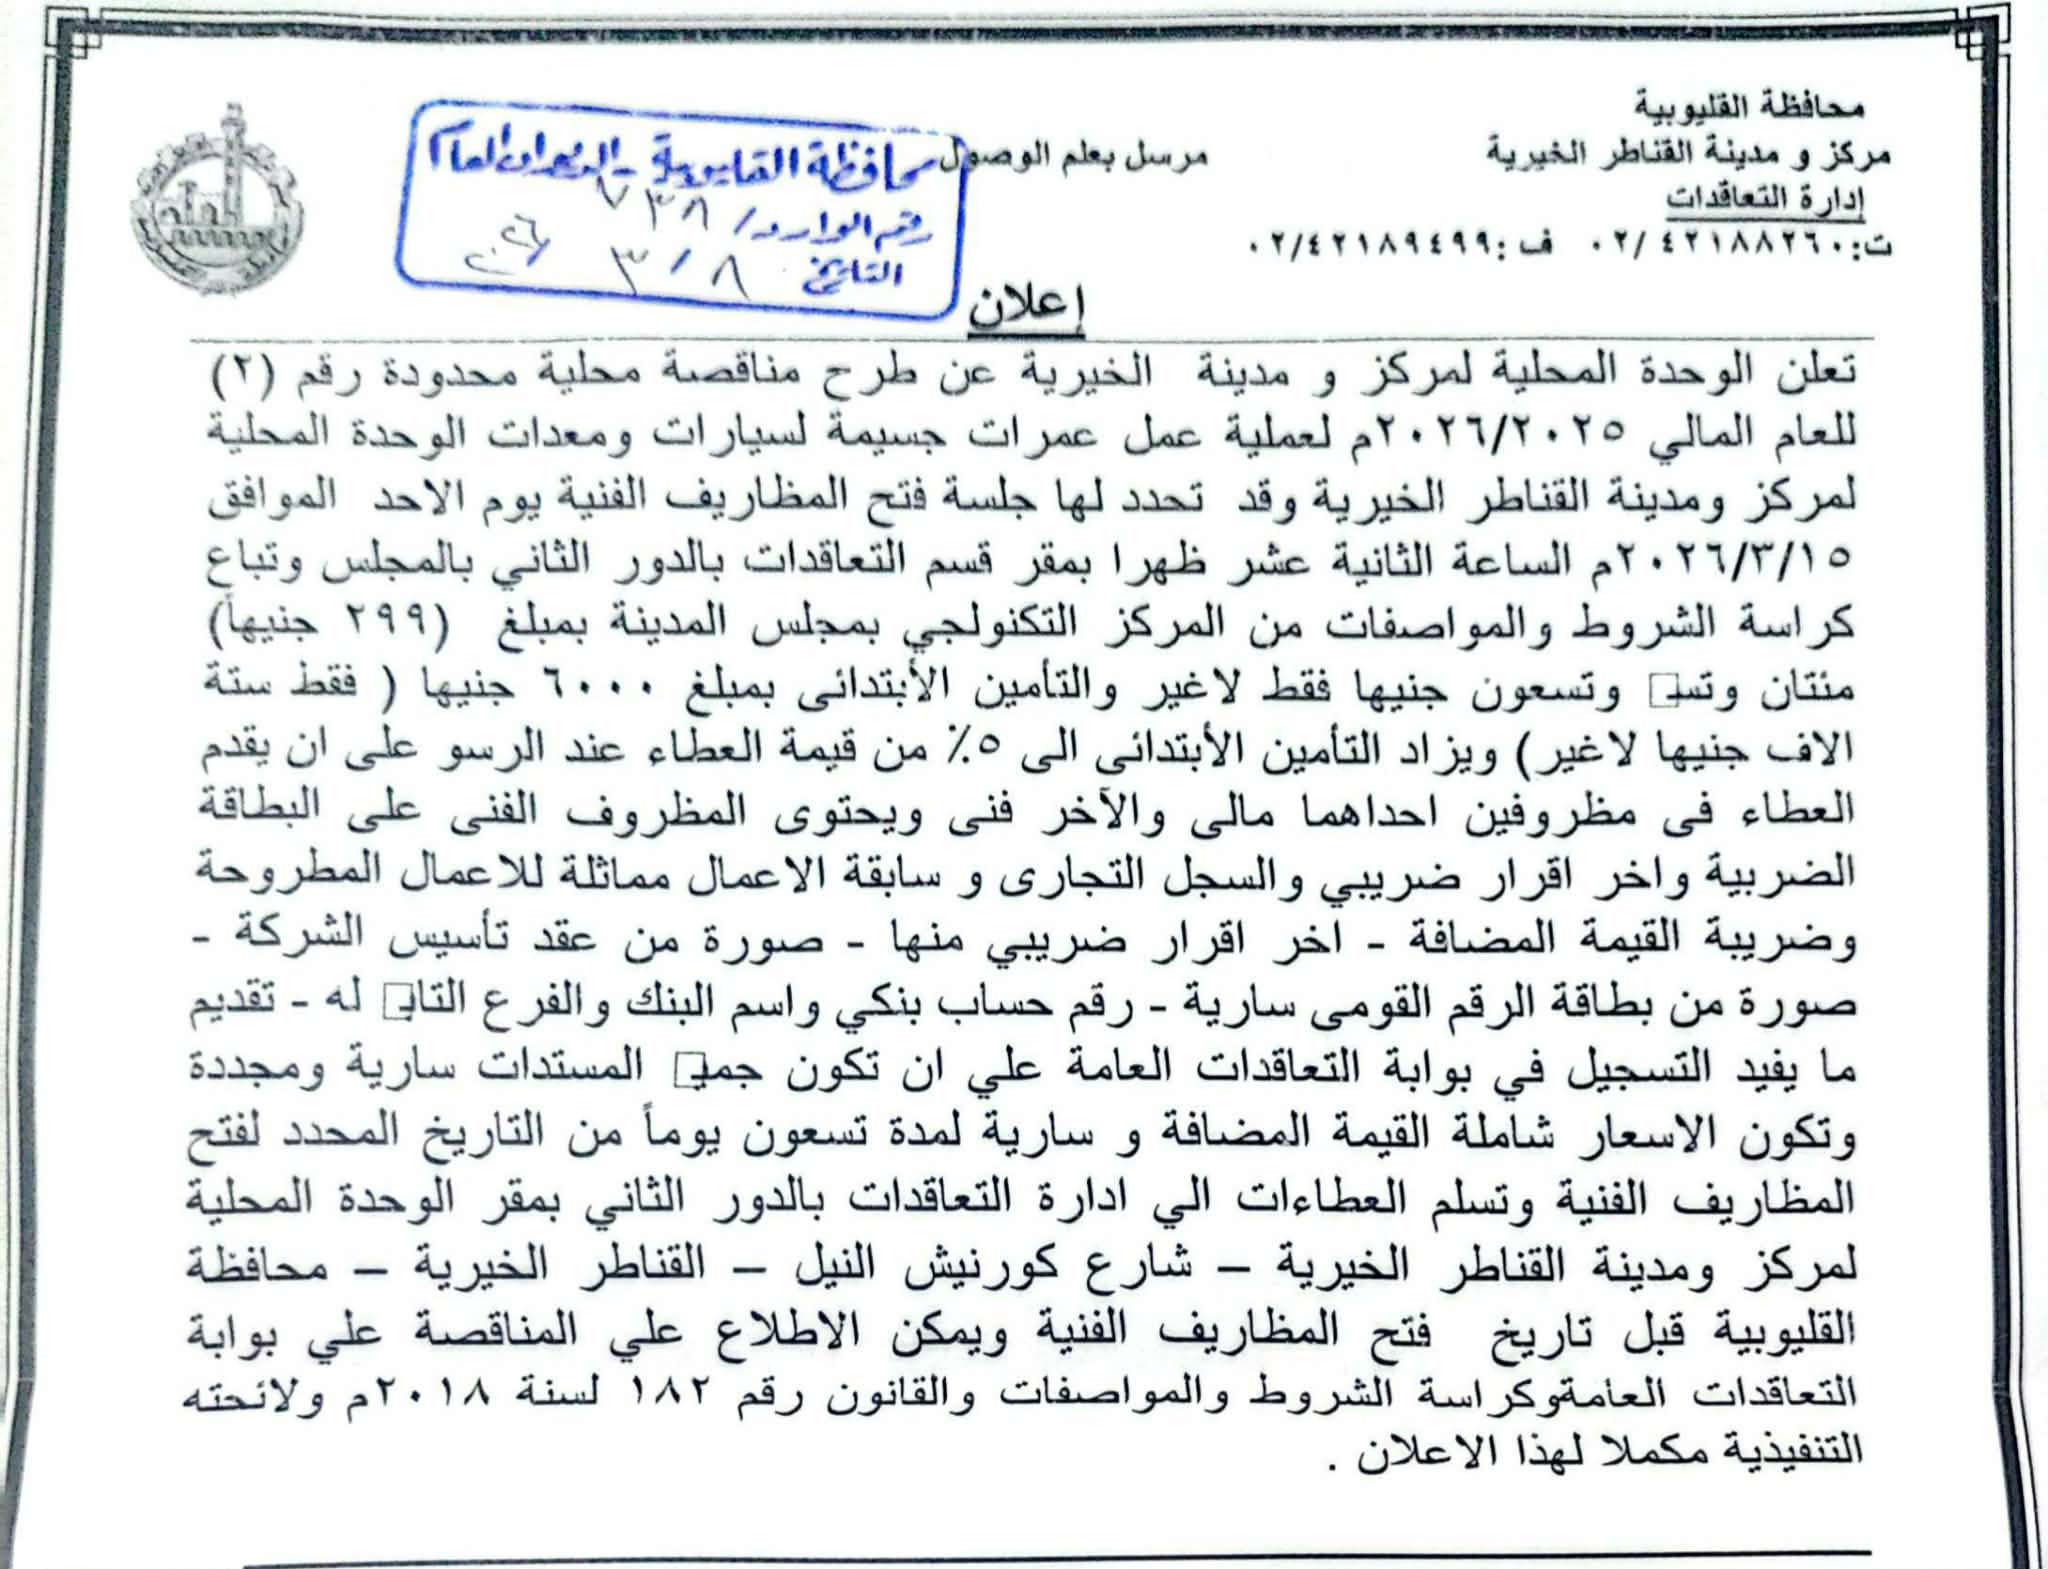 محافظة القليوبية
مركز و مدينة القناطر الخيرية
مرسل بعلم الوصول
إدارة التعاقدات
ت: ٠٢/٤٢١٨٨٢٦٠ ف: ٠٢/٤٢١٨٩٤٩٩
محافظة القليوبية - الديوان العام
رقم الوارد / ٧٣٨
التاريخ ٨ / ٣ / ٢٠٢٦
إعلان
تعلن الوحدة المحلية لمركز و مدينة الخيرية عن طرح مناقصة محلية محدودة رقم (٢)
للعام المالي ٢٠٢٦/٢٠٢٥م لعملية عمل عمرات جسيمة لسيارات ومعدات الوحدة المحلية
لمركز ومدينة القناطر الخيرية وقد تحدد لها جلسة فتح المظاريف الفنية يوم الاحد الموافق
٢٠٢٦/٣/١٥م الساعة الثانية عشر ظهرا بمقر قسم التعاقدات بالدور الثاني بالمجلس وتباع
كراسة الشروط والمواصفات من المركز التكنولجي بمجلس المدينة بمبلغ (٢٩٩ جنيهاً)
مئتان وتسـ وتسعون جنيها فقط لاغير والتأمين الأبتدائى بمبلغ ٦٠٠٠ جنيها ( فقط ستة
الاف جنيها لاغير) ويزاد التأمين الأبتدائى الى ٥٪ من قيمة العطاء عند الرسو على ان يقدم
العطاء فى مظروفين احداهما مالى والآخر فنى ويحتوى المظروف الفنى على البطاقة
الضربية واخر اقرار ضريبي والسجل التجارى و سابقة الاعمال مماثلة للاعمال المطروحة
وضريبة القيمة المضافة - اخر اقرار ضريبي منها - صورة من عقد تأسيس الشركة -
صورة من بطاقة الرقم القومى سارية - رقم حساب بنكي واسم البنك والفرع التابـ له - تقديم
ما يفيد التسجيل في بوابة التعاقدات العامة علي ان تكون جميـ المستدات سارية ومجددة
وتكون الاسعار شاملة القيمة المضافة و سارية لمدة تسعون يوماً من التاريخ المحدد لفتح
المظاريف الفنية وتسلم العطاءات الي ادارة التعاقدات بالدور الثاني بمقر الوحدة المحلية
لمركز ومدينة القناطر الخيرية – شارع كورنيش النيل – القناطر الخيرية – محافظة
القليوبية قبل تاريخ فتح المظاريف الفنية ويمكن الاطلاع علي المناقصة علي بوابة
التعاقدات العامةوكراسة الشروط والمواصفات والقانون رقم ١٨٢ لسنة ٢٠١٨م ولائحته
التنفيذية مكملا لهذا الاعلان .